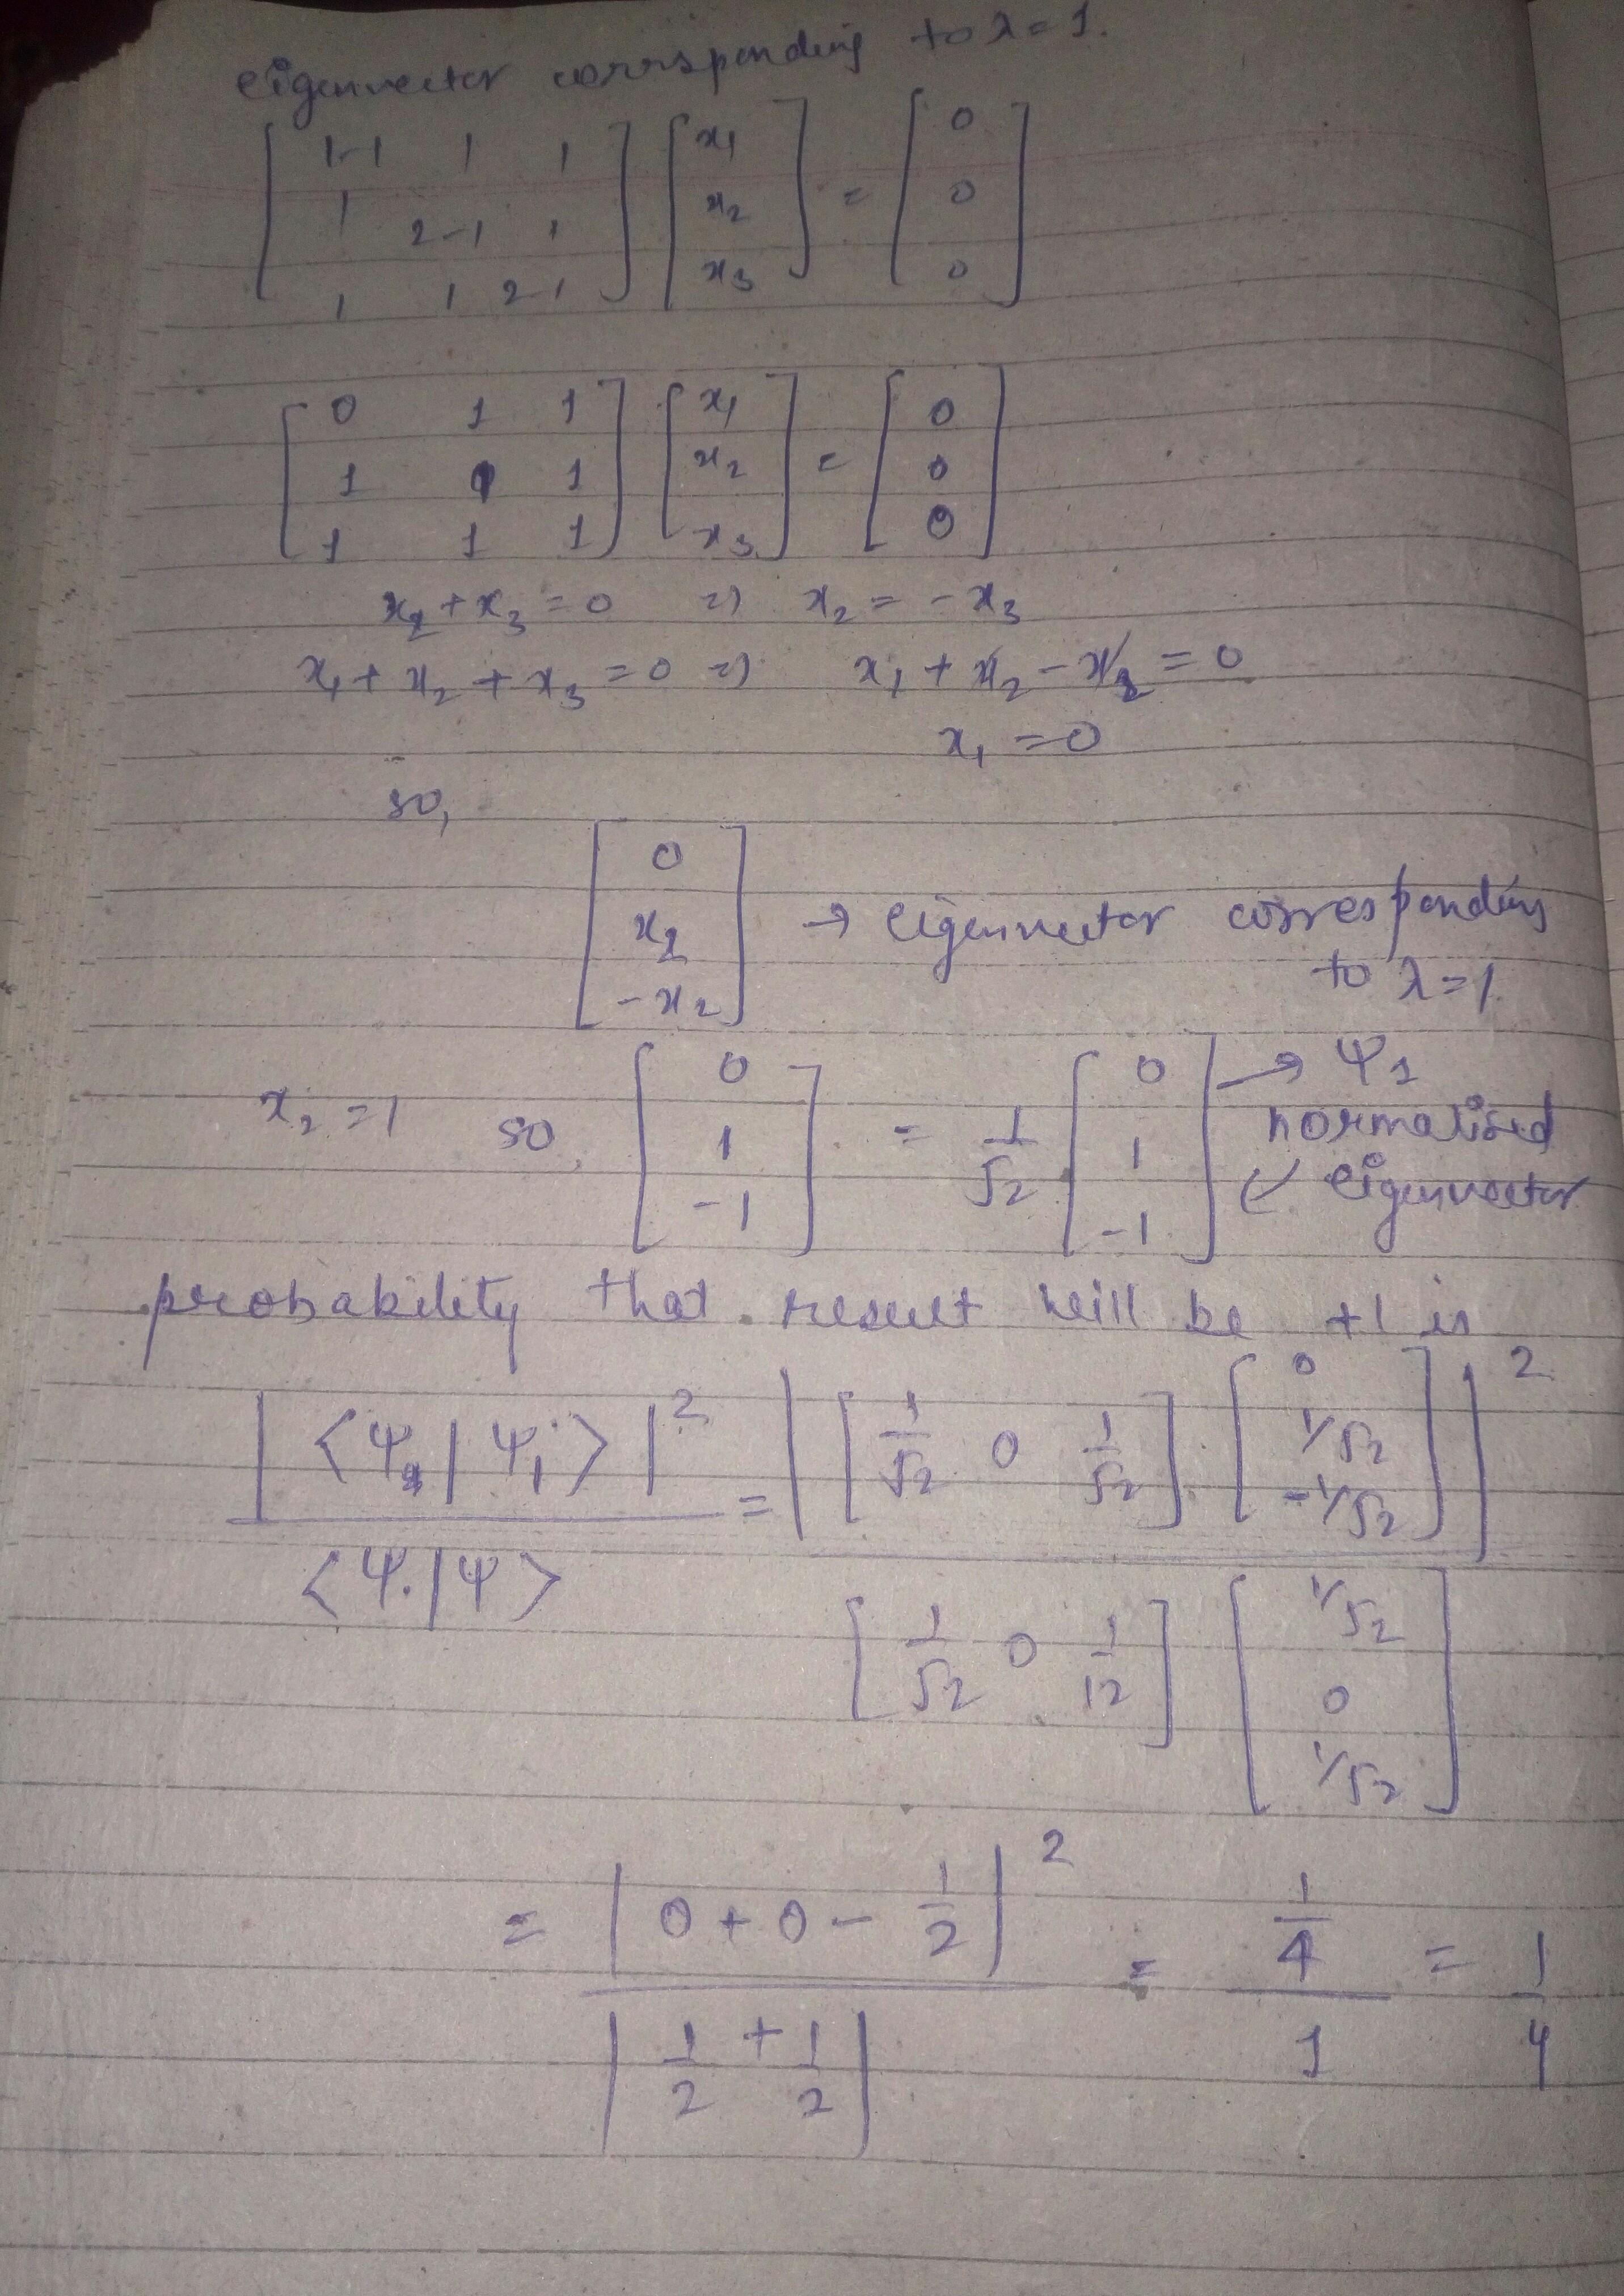 eigenvector corrsponding to λ = 1.
[ 1-1 1 1 ] [ x₁ ] [ 0 ]
[ 1 2-1 1 ] [ x₂ ] = [ 0 ]
[ 1 1 2 1 ] [ x₃ ] [ 0 ]
[ 0 1 1 ] [ x₁ ] [ 0 ]
[ 1 1 1 ] [ x₂ ] = [ 0 ]
[ 1 1 1 ] [ x₃ ] [ 0 ]
x₂ + x₃ = 0 => x₂ = - x₃
x₁ + x₂ + x₃ = 0 => x₁ + x₂ - x₂ = 0
x₁ = 0
so,
[ 0 ]
[ x₂ ] → eigenvector corresponding
[ -x₂ ] to λ = 1.
[ 0 ] [ 0 ] → Ψ₁
x₂ = 1 so [ 1 ] = 1/√2 [ 1 ] normalised
[ -1 ] [ -1 ] ↙ eigenvector
probability that result will be +1 is
|⟨Ψ | Ψ₁⟩|² = | [ 1/√2 0 1/√2 ] [ 0 1/√2 -1/√2 ] |²
⟨Ψ|Ψ⟩ [ 1/√2 0 1/12 ] [ 1/√2 0 1/√2 ]
= | 0 + 0 - 1/2 |² = 1/4 = 1/4
| 1/2 + 1/2 | 1